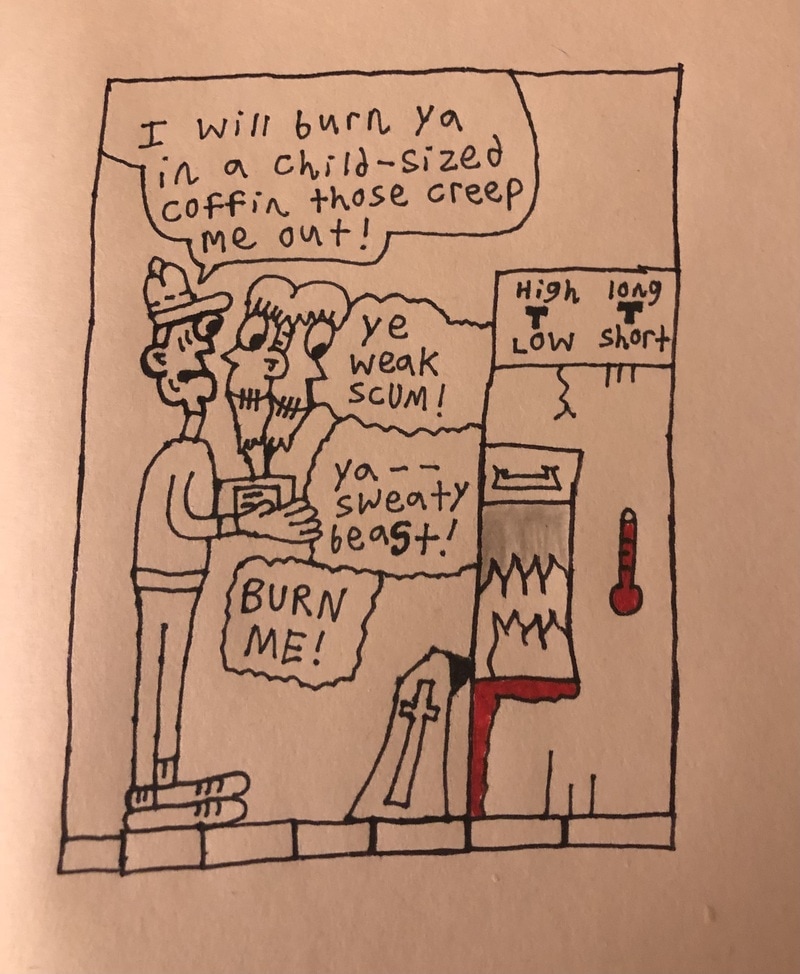 I will burn ya
in a child-sized
coffin those creep
me out!
HigH long
LOW short
ye
weak
SCUM!
ya--
sweaty
beast!
BURN
ME!